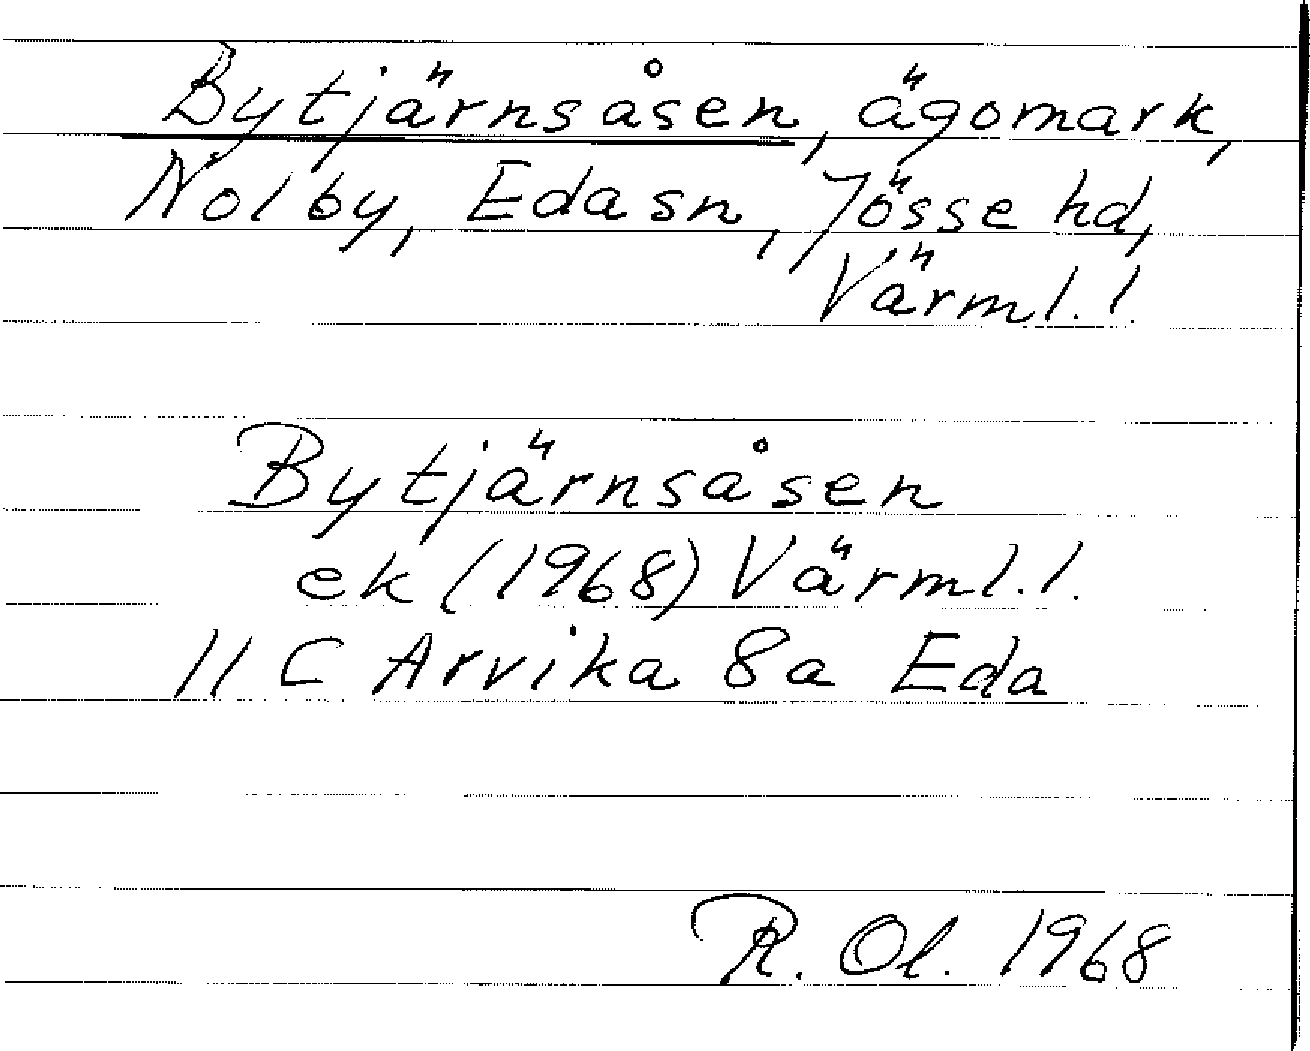 Bytjärnsåsen, ägomark,
Nolby, Eda sn, Jösse hd,
Värml. l.
Bytjärnsåsen
ek (1968) Värml. l.
11 C Arvika 8a Eda
R. Ol. 1968